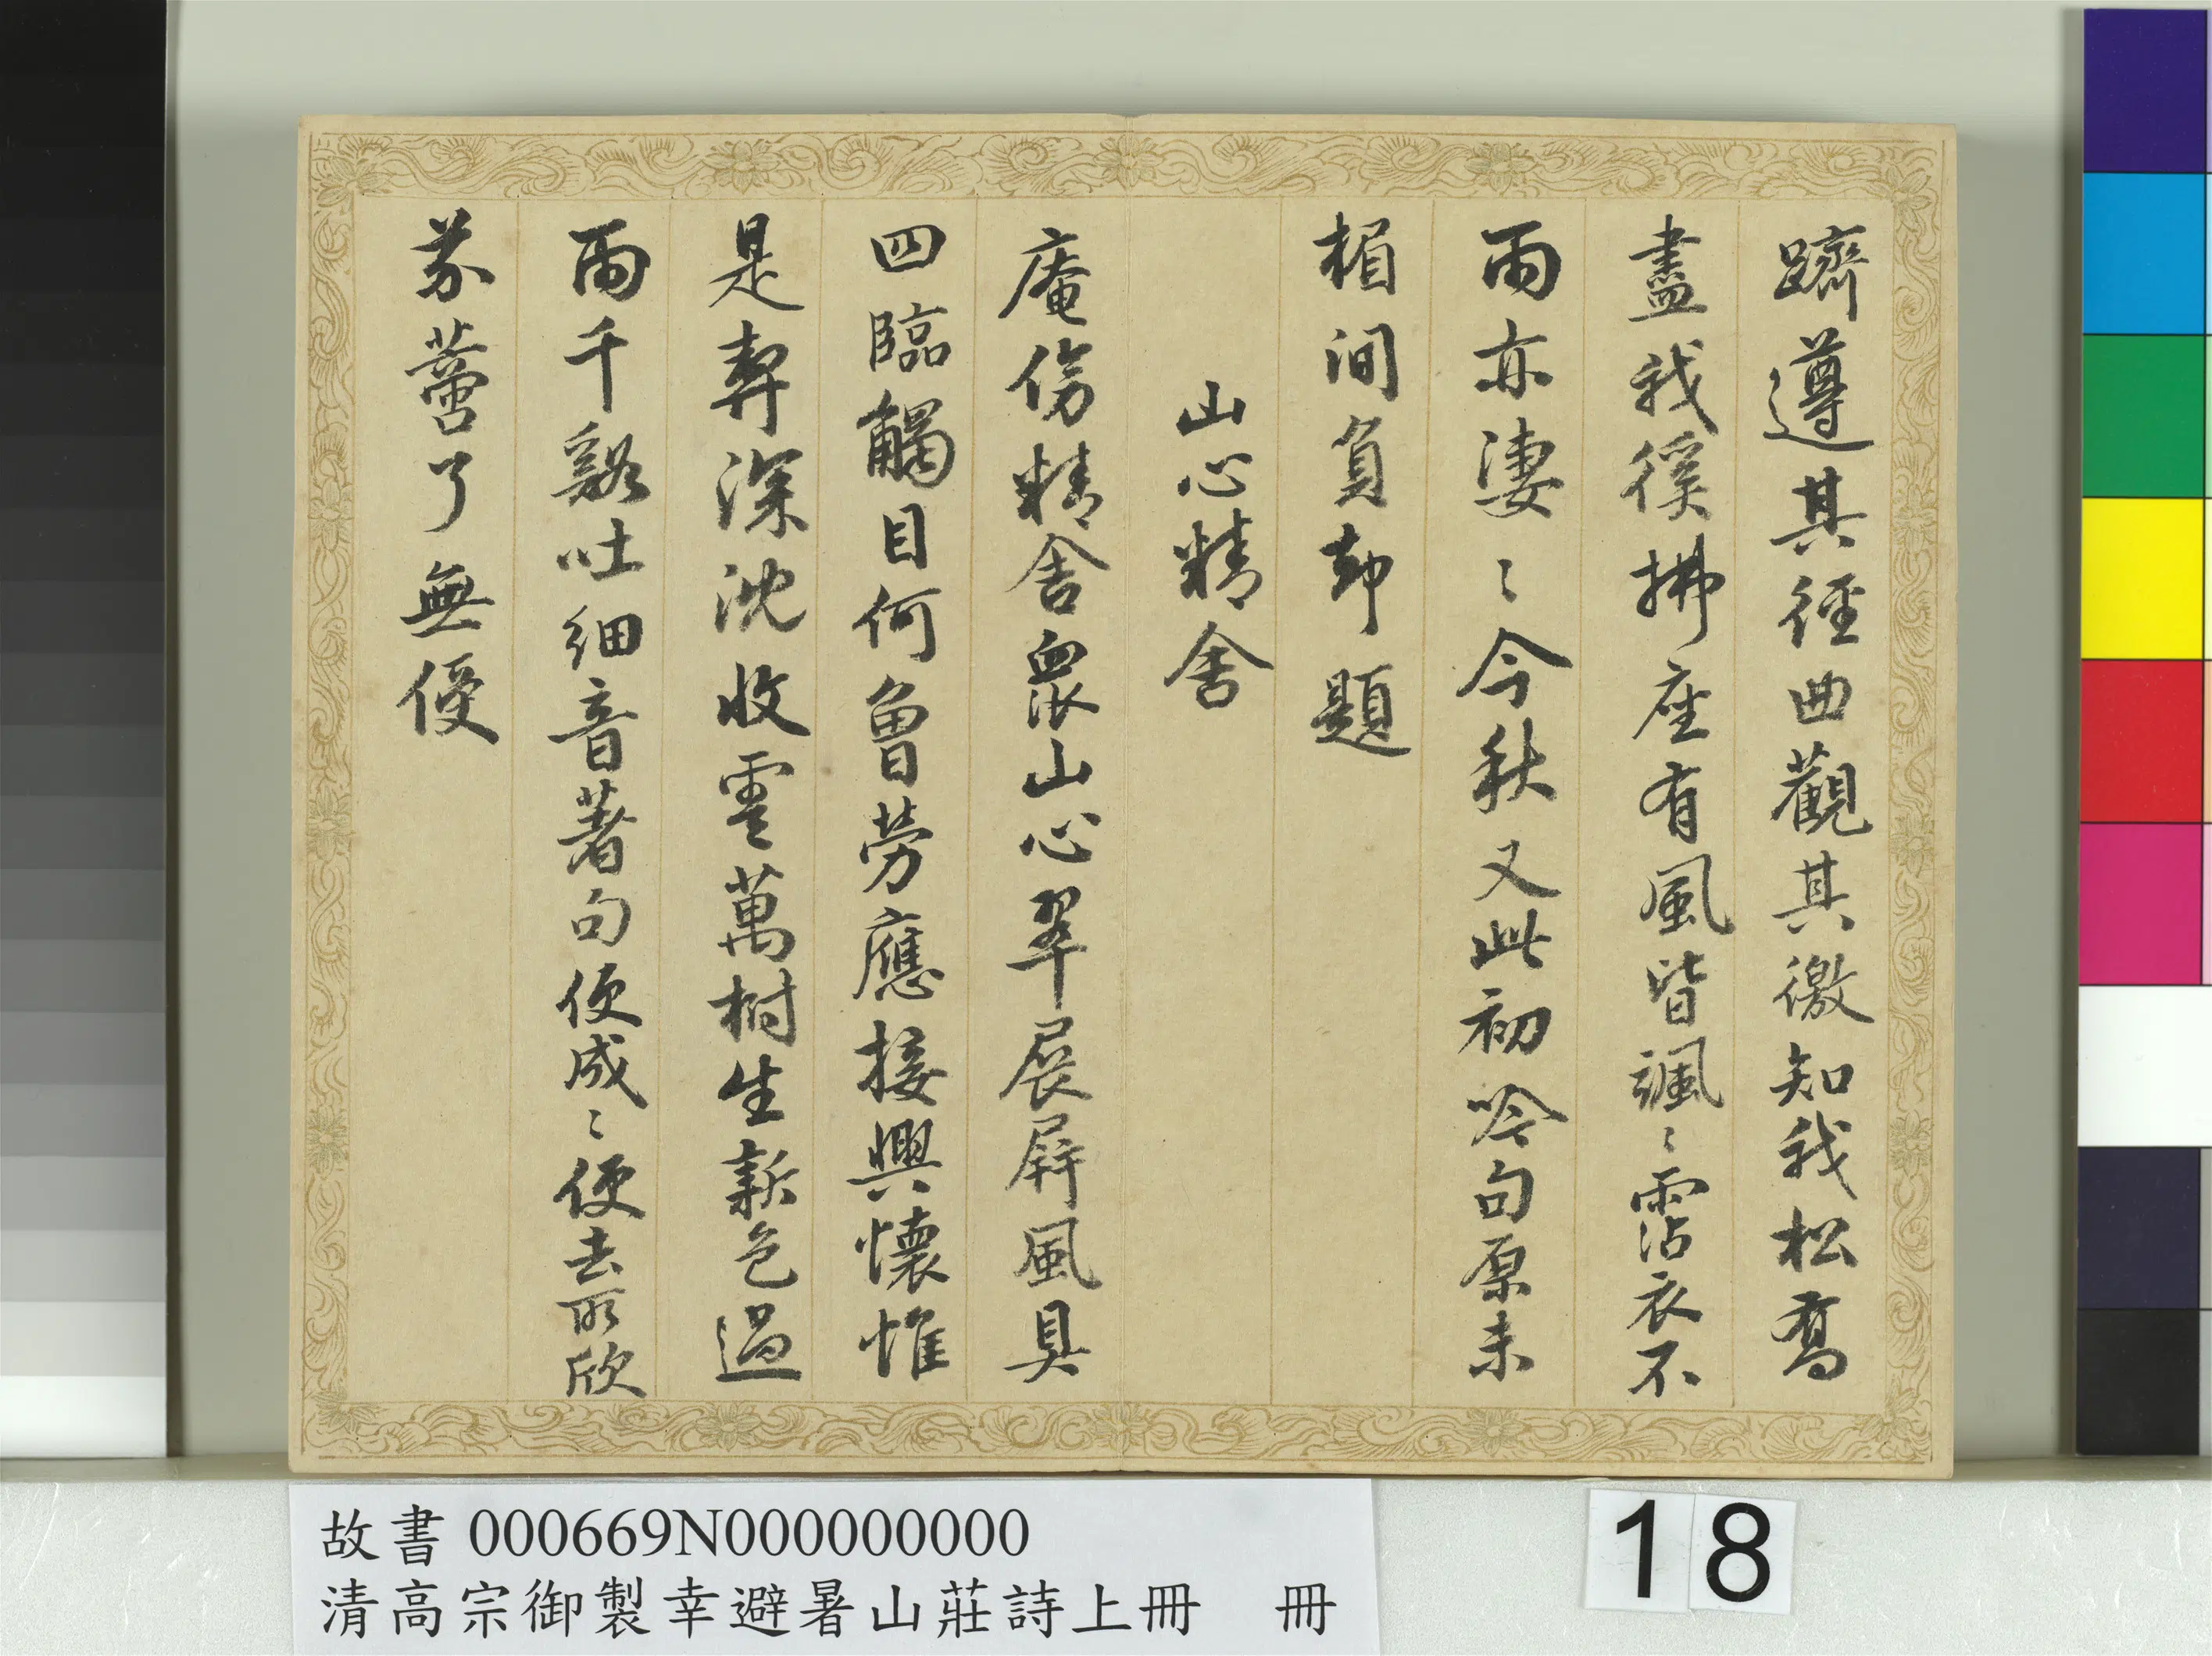 躋遵其徑曲觀其徼知我松喬
盡我徯拂座有風皆颯〻霑衣不
雨亦淒〻今秋又此初吟句原未
楣間負却題
山心精舍
庵傍精舍衆山心翠展屏風具
四臨觸目何曾勞應接興懷惟
是契深沈收雲萬樹生新色過
雨千谿吐細音著句便成〻便去所欣
芥蔕了無侵
故書 000669N000000000
清高宗御製幸避暑山莊詩上冊 冊
18